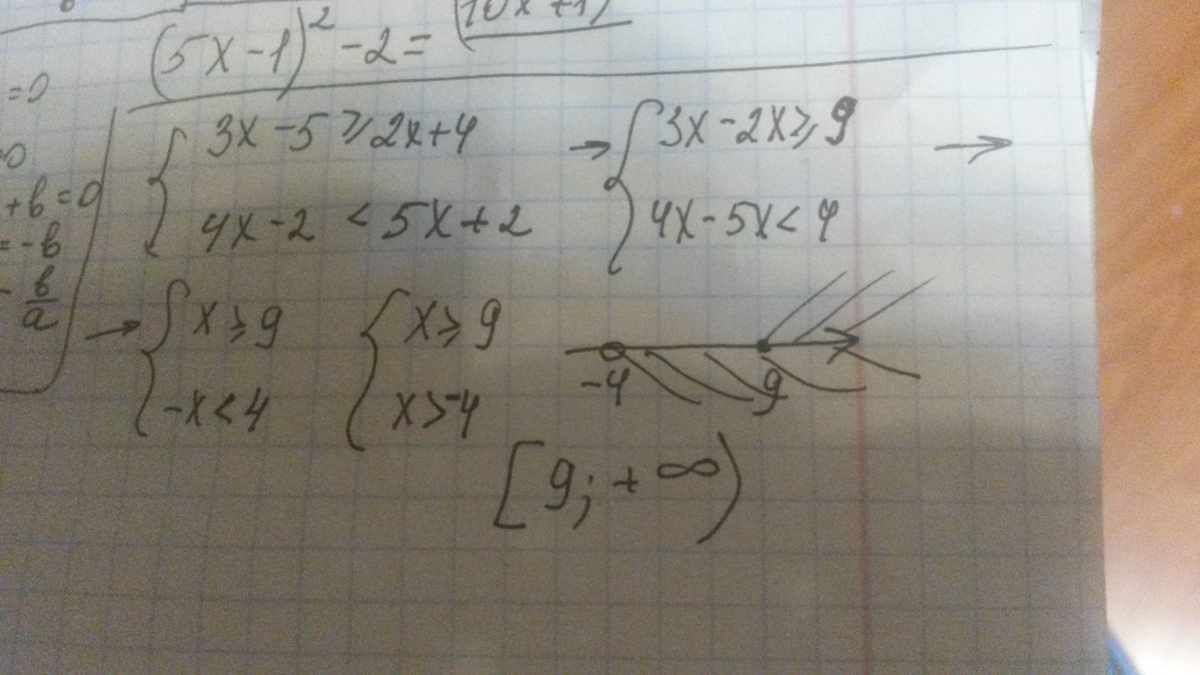 (5x-1)² -2=
=0
+b=0
=-b
b/a
{ 3x-5 ≥ 2x+4 → { 3x-2x ≥ 9 →
{ 4x-2 < 5x+2 { 4x-5x < 4
→ { x ≥ 9 { x ≥ 9
{ -x < 4 { x > -4
-4 9
[9; +∞)